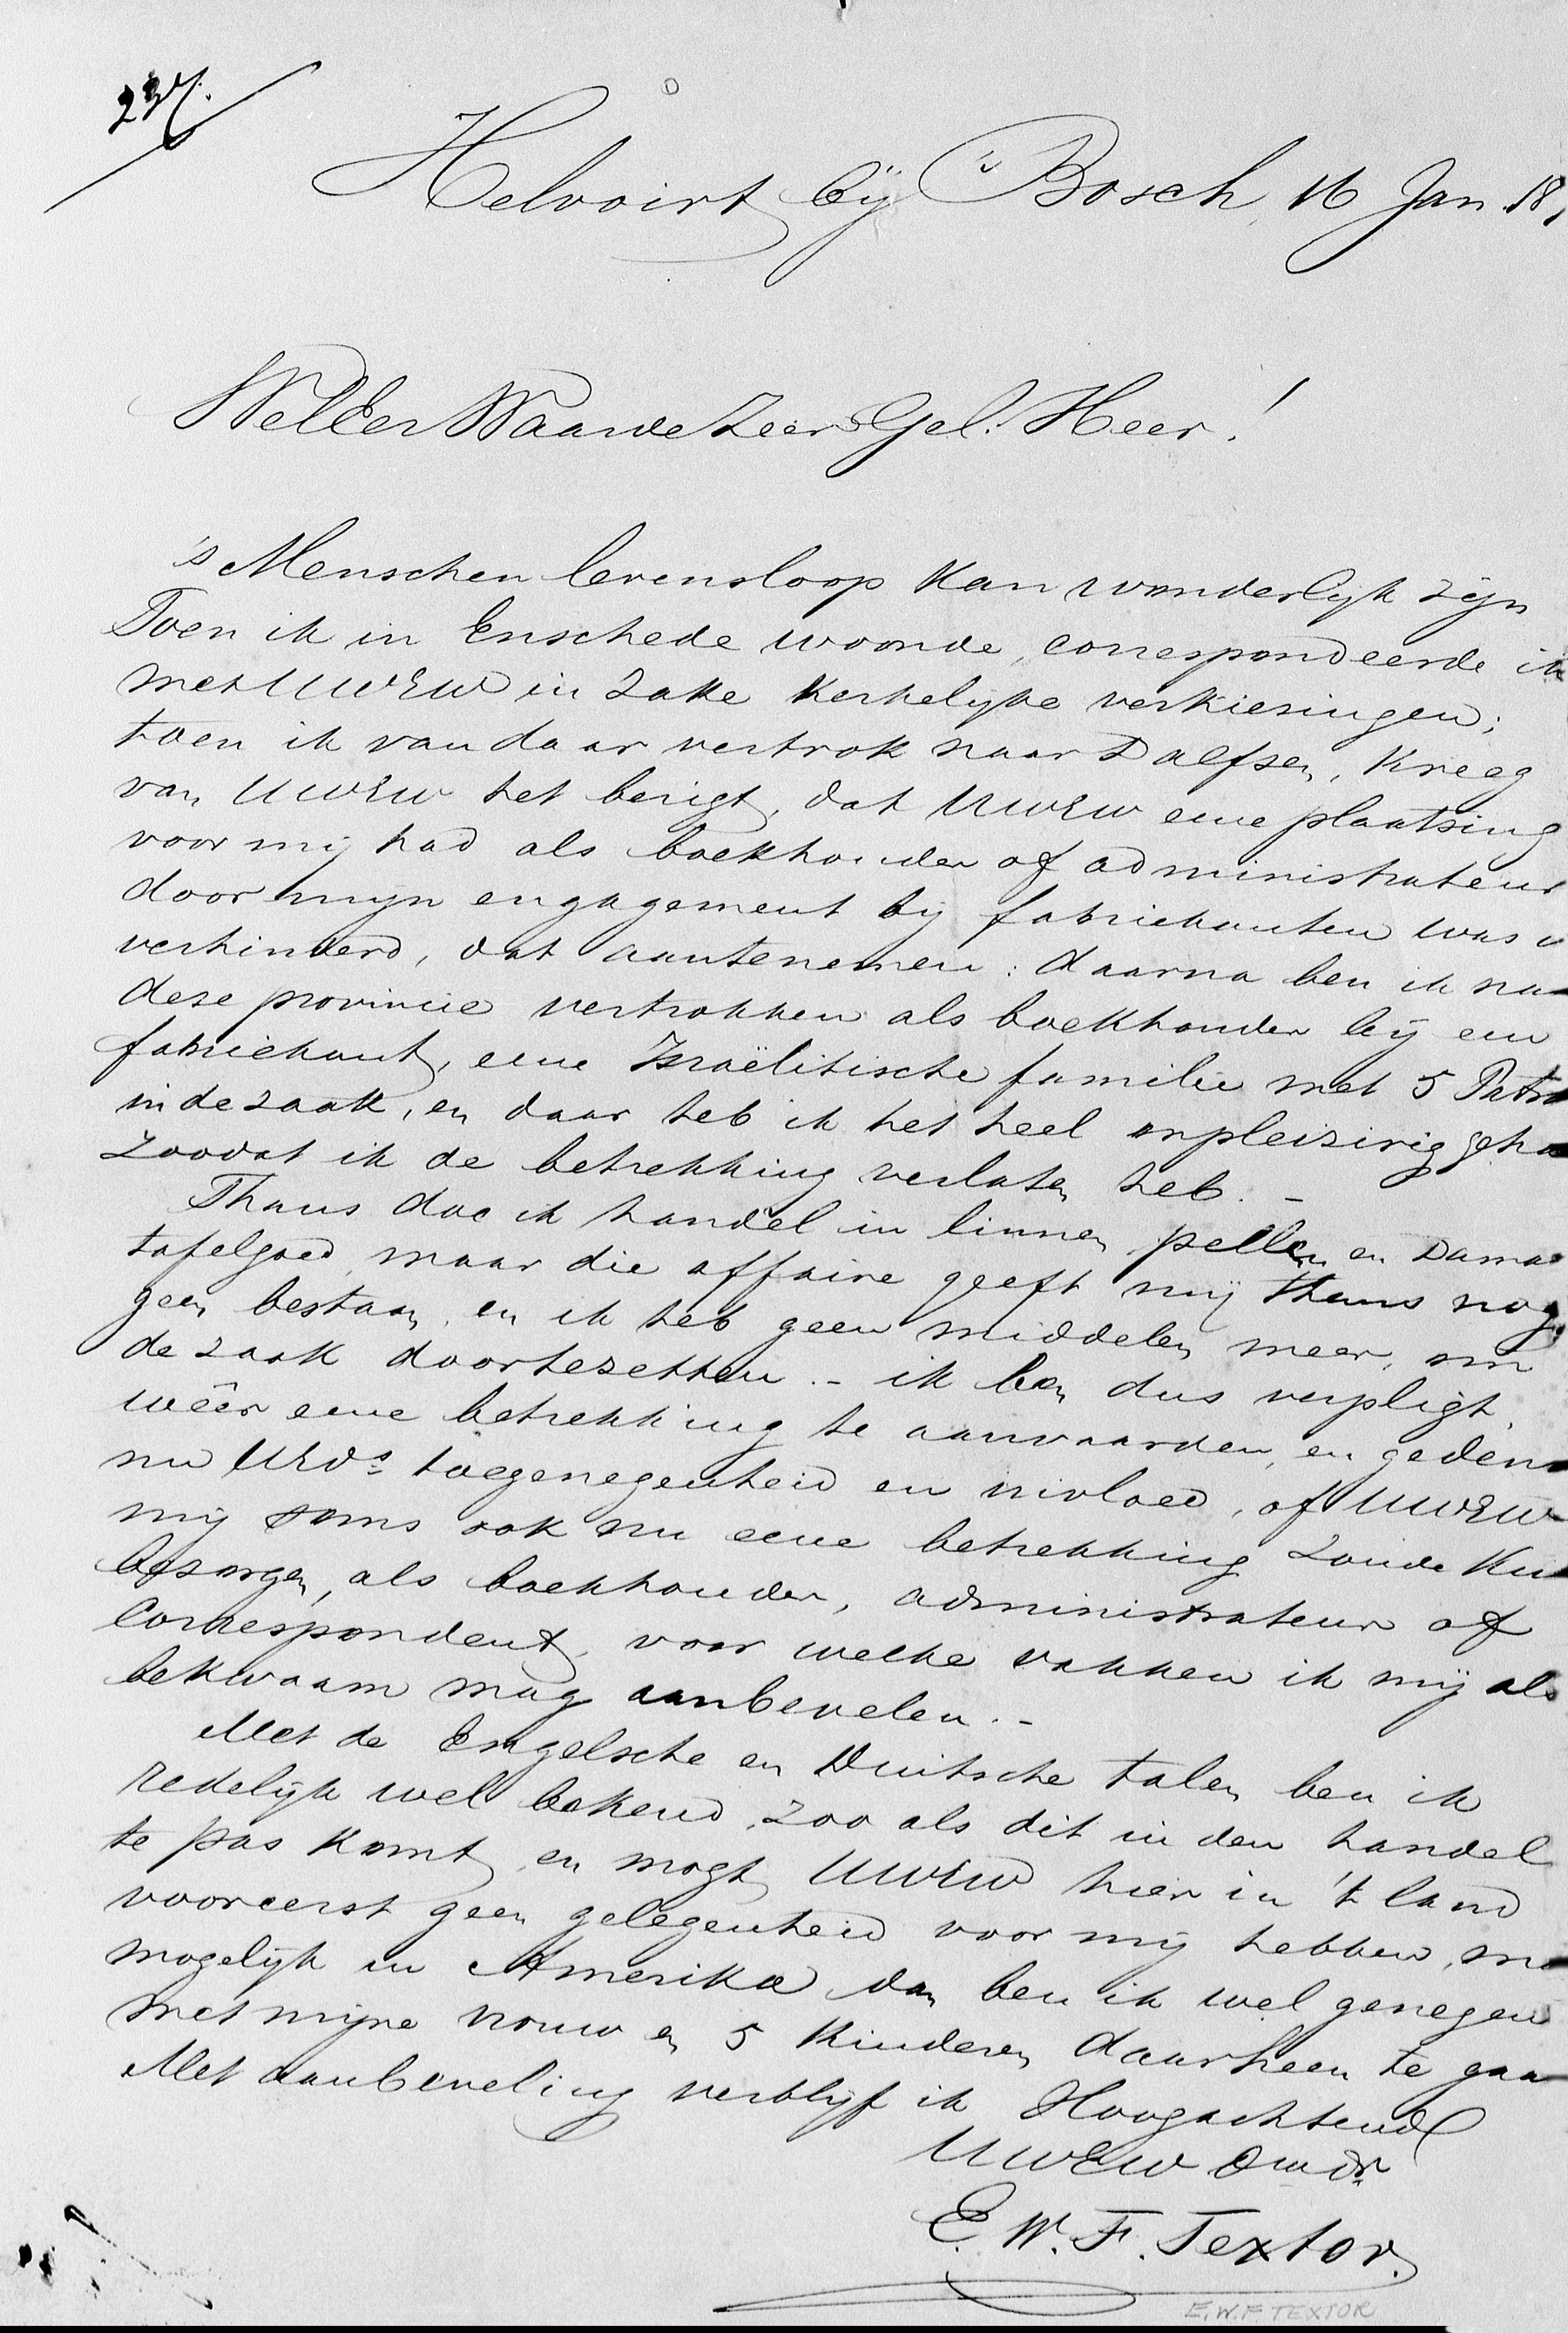 237.
Helvoirt bij 's Bosch, 16 Jan. 18
WelEerWaarde Zeer Gel. Heer!
's Menschen levensloop kan wonderlijk zijn
Toen ik in Enschede woonde, correspondeerde ik
met UWEW in zake kerkelijke verkiesingen;
toen ik van daar vertrok naar Dalfsen, kreeg
van UWEW het berigt, dat UWEW eene plaatsing
voor mij had als boekhouder of administrateur
door mijn engagement bij fabriekanten was i
verhinderd, dat aantenemen: daarna ben ik na
deze provincie vertrokken als boekhouder bij een
fabriekant, eene Israëlitische familie met 5 Patro
in de zaak, en daar heb ik het heel onpleizirig geha
zoodat ik de betrekking verlaten heb. –
Thans doe ik handel in linnen pellen en Dama
tafelgoed, maar die affaire geeft mij thans nog
geen bestaan, en ik heb geen middelen meer, om
de zaak doortezetten. – ik ben dus verpligt,
wêer eene betrekking te aanvaarden, en geden
nu UEds toegenegenheid en invloed, of UWEW
mij soms ook nu eene betrekking zoude Kun
bezorgen, als boekhouder, administrateur of
Correspondent, voor welke vakken ik mij als
bekwaam mag aanbevelen. –
Met de Engelsche en Duitsche talen ben ik
redelijk wel bekend, zoo als dit in den handel
te pas komt, en mogt UWEW hier in 't land
vooreerst geen gelegenheid voor mij hebben, m
mogelijk in Amerika dan ben ik wel genegen
met mijne vrouw en 5 kinderen daarheen te gaa
Met aanbeveling verblijf ik Hoogachtend
UWEW Dwdr.
E. W. F. Textor.
E.W.F. TEXTOR